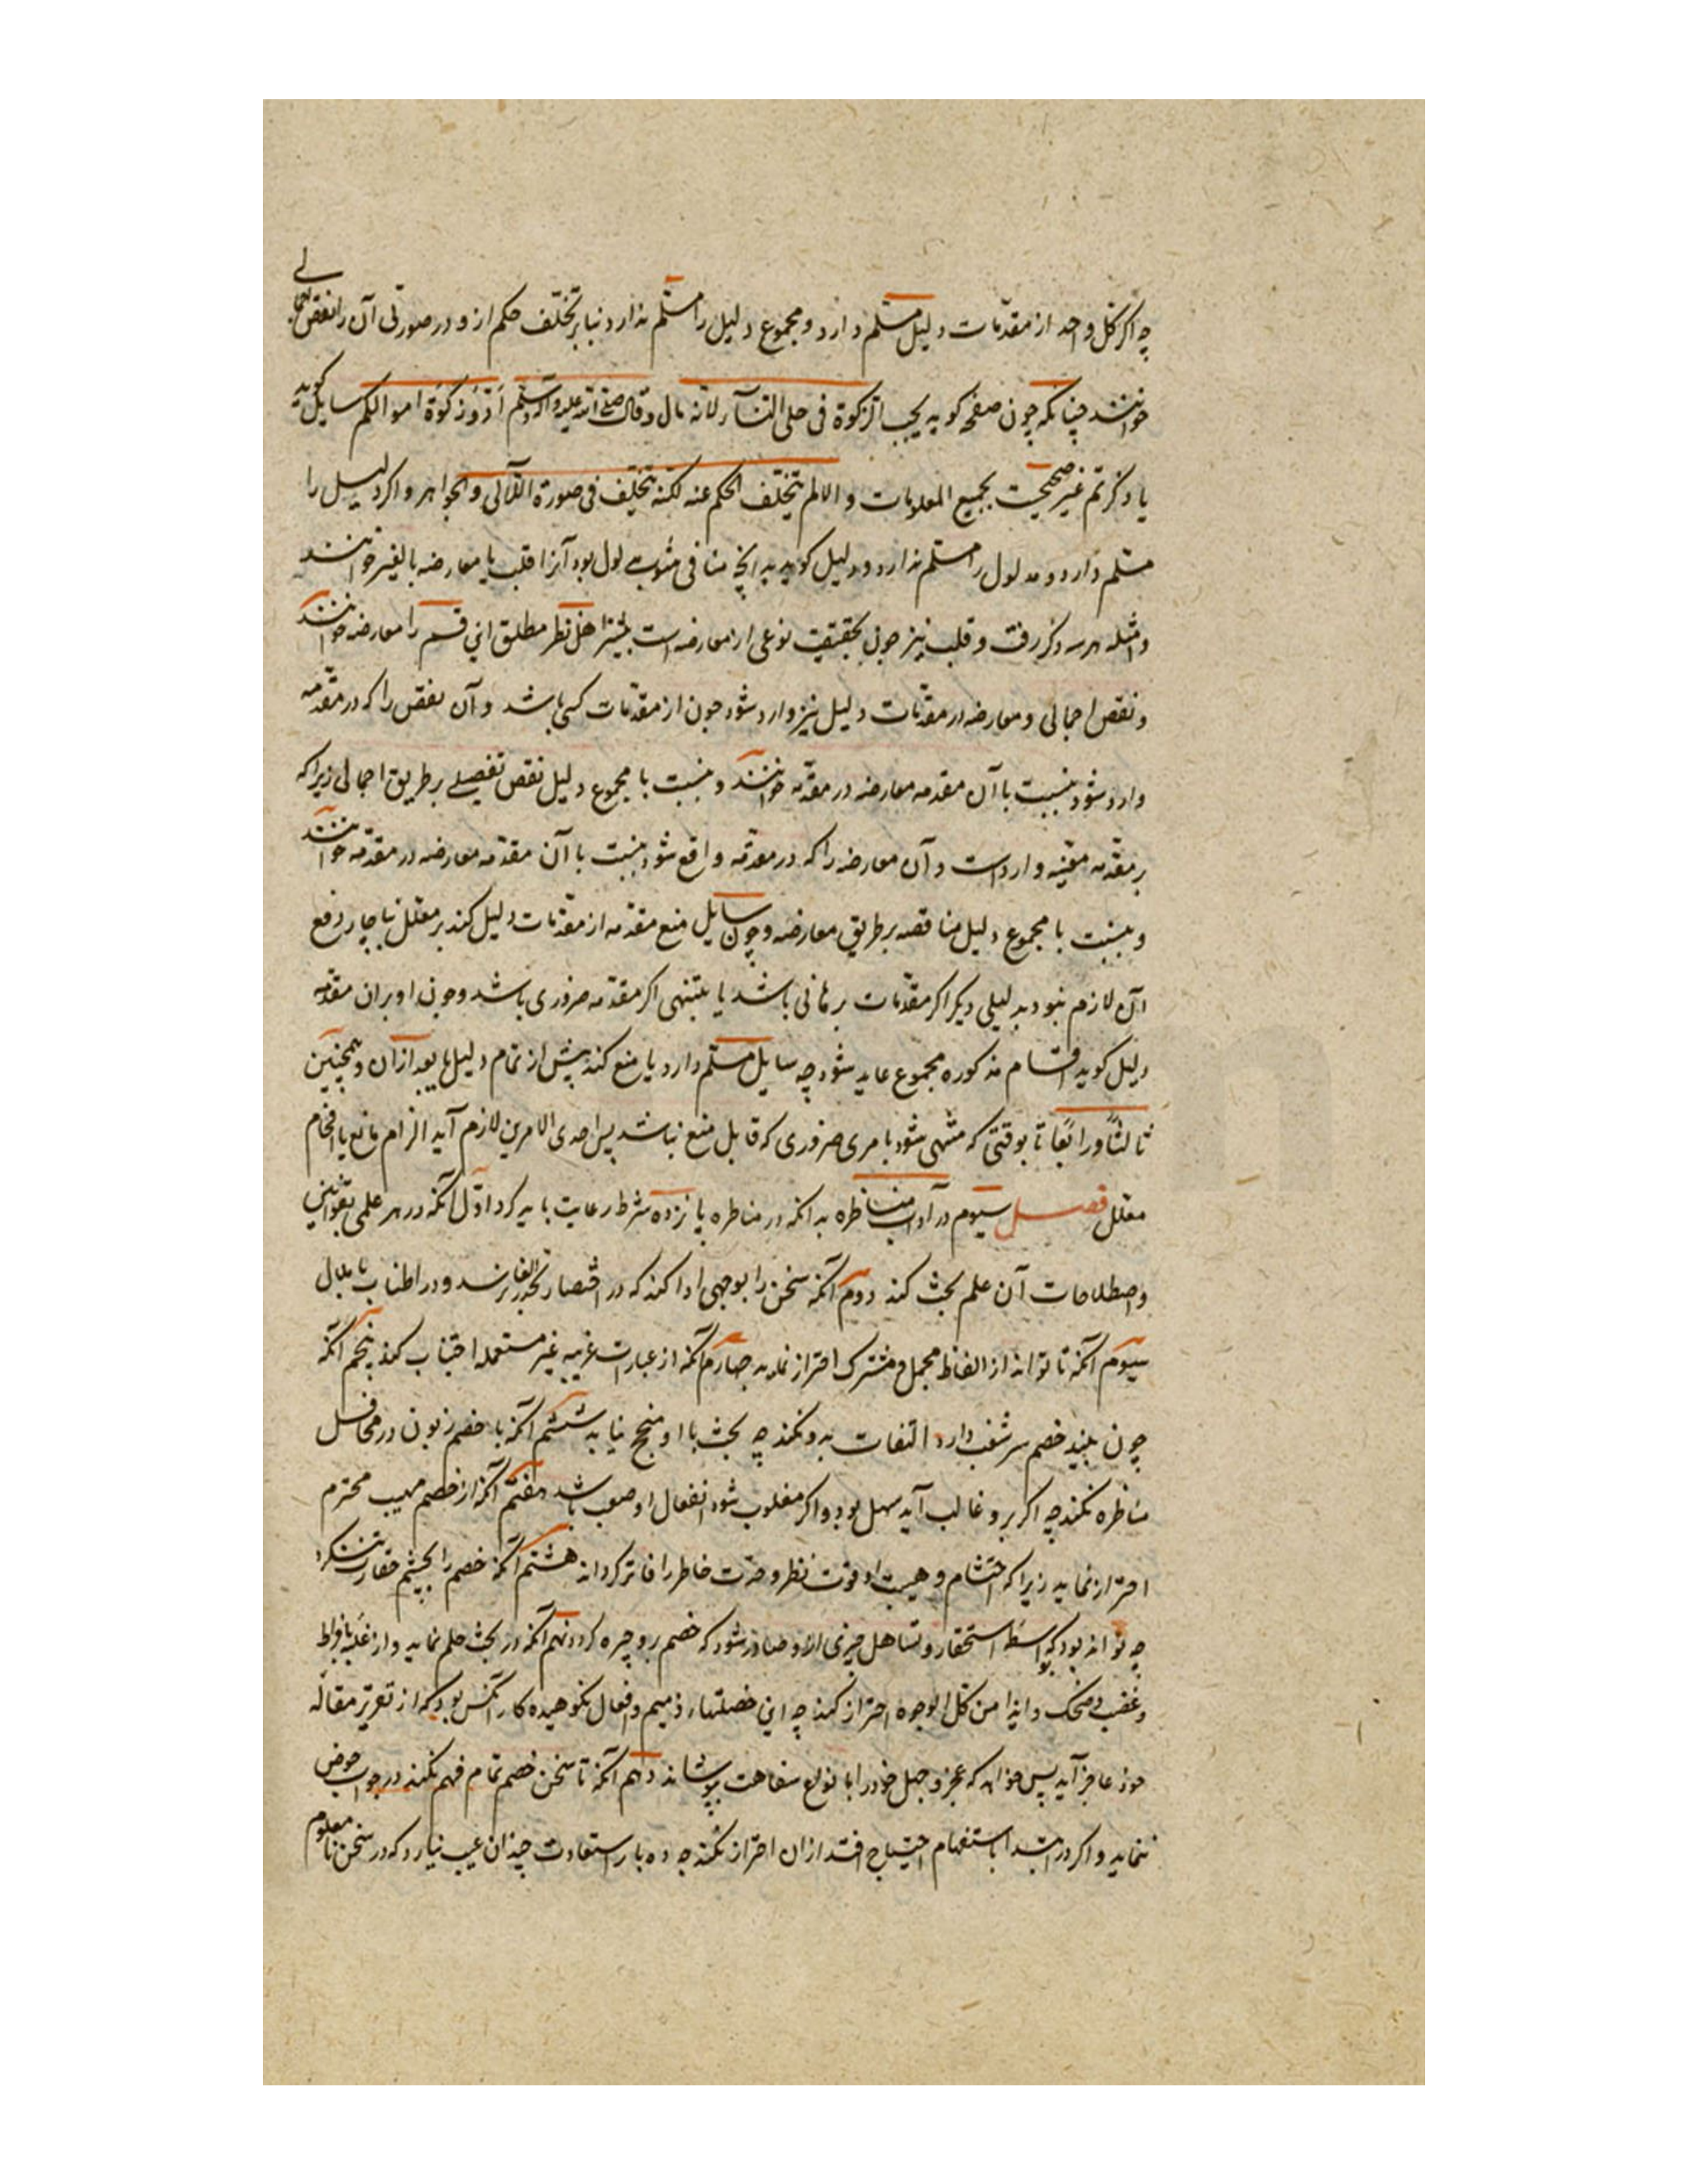 چه اکر کل واحد از مقدمات دلیل مسلم دارد و مجموع دلیل را مسلم ندارد بنابر تخلف حکم ازو در صورتی آن را نقض اجمالی
خوانند چنانکه چون صفحه کوید یجب الزکوة فی حلی النسآء لانه مال وقال صلی الله علیه وآله وسلم ادوا زکوة اموالکم سایل کوید
یا ذکرتم غیر صحیح بجمیع المعلومات والا لم یتخلف الحکم عنه لکنه تخلف فی صورة اللآلی والجواهر و اکر دلیل را
مسلم دارد و مدلول را مسلم ندارد و دلیل کوید بد انچه منافی مدلول بود آنرا قلب یا معارضه بالغیر خوانند
وامثله هرسه ذکر رفت و قلب نیز چون بحقیقت نوعی از معارضه است بیشتر اهل نظر مطلق این قسم را معارضه خوانند
و نقض اجمالی و معارضه در مقدمات دلیل نیز وارد شود چون از مقدمات کسی باشد و آن نقض را که در مقدمه
وارد شود بنسبت با آن مقدمه معارضه در مقدمه خوانند و بنسبت با مجموع دلیل نقض تفصیلی بر طریق اجمالی زیرا که
بر مقدمه معینه وارد است و آن معارضه را که در مقدمه واقع شود بنسبت با آن مقدمه معارضه در مقدمه خوانند
و بنسبت با مجموع دلیل مناقضه بر طریق معارضه و چون سایل منع مقدمه از مقدمات دلیل کند بر معلل ناچار دفع
آن لازم نبود بدلیلی دیکر اکر مقدمات برهانی باشد یا بتنبهی اکر مقدمه ضروری باشد و چون او بران مقدمه
دلیل کوید اقسام مذکوره مجموع عاید شود چه سایل مسلم دارد یا منع کند پیش از تمام دلیل یا بعد از آن و همچنین
ثالثاً و رابعاً تا بوقتی که منتهی شود بامری ضروری که قابل منع نباشد پس احدی الامرین لازم آید الزام مانع یا افحام
معلل فصل سیوم در آداب مناظره بدانکه در مناظره پانزده شرط رعایت باید کرد اول آنکه در هر علمی بقوانین
و اصطلاحات آن علم بحث کند دوم آنکه سخن را بوجهی ادا کند که در اختصار بحد الغاز نرسد و در اطناب باملال
سیوم آنکه تا تواند از الفاظ مجمل و مشترک احتراز نماید چهارم آنکه از عبارات غریبه غیر مستعمله اجتناب کند پنجم آنکه
چون بیند خصم سر شغب دارد التفات بدو نکند چه بحث با او منجح نیاید ششم آنکه با خصم زبون در محافل
مناظره نکند چه اکر برو غالب آید سهل بود و اکر مغلوب شود انفعال او صعب باشد هفتم آنکه از خصم مهیب محترم
احتراز نماید زیرا که احتشام و هیبت او قوت نظر و حدت خاطر را فاتر کرداند هشتم آنکه خصم را بچشم حقارت ننکرد
چه تواند بود که بواسطه استحقار و تساهل چیزی ازو صادر شود که خصم برو چیره کردد نهم آنکه در بحث حلم نماید و از غلبه بافراط
و غضب و ضحک و ایذا من کل الوجوه احتراز کند چه این خصلتهاء ذمیم و افعال نکوهیده کار آنکس بود که از تقریر مقاله
خود عاجز آید پس خواهد که عجز و جهل خود را با نواع سفاهت بپوشاند دهم آنکه تا سخن خصم تمام فهم نکند در جواب خوض
ننماید و اکر در ابتدا باستفهام احتیاج افتد از ان احتراز نکند چه ده بار استعادت چندان عیب نیارد که در سخن نامعلوم